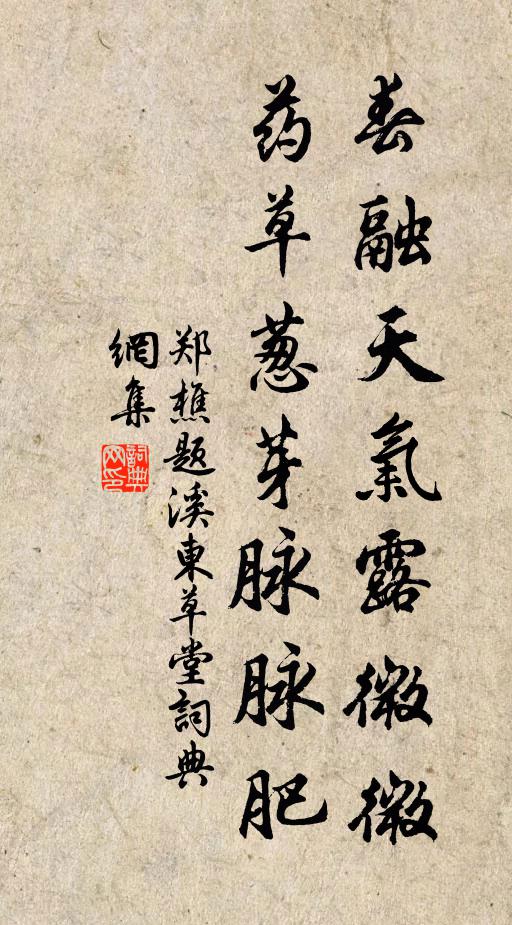 春融天氣露微微
药草葱芽脉脉肥
郑樵题溪東草堂詞典
網集
詞典网印